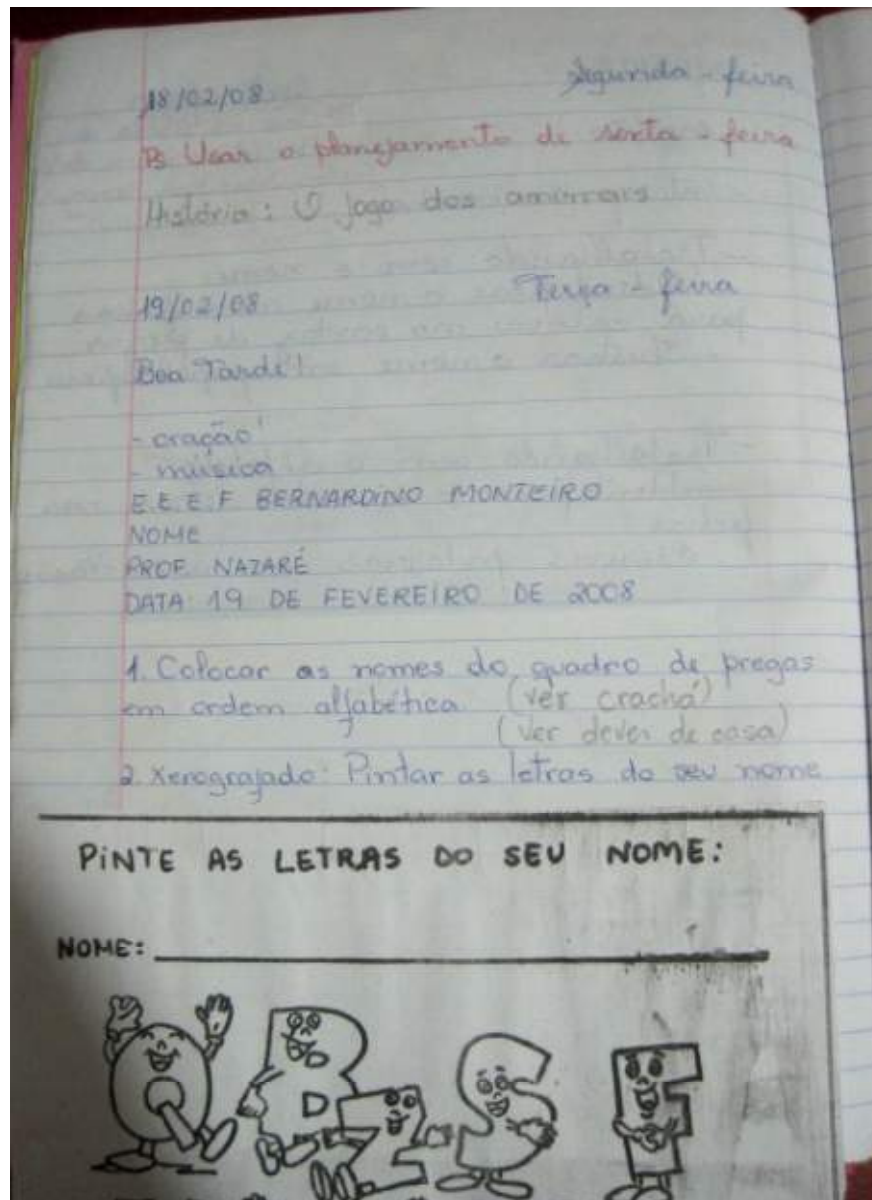 18/02/08 Segunda-feira
Ps Usar o planejamento de sexta-feira
História: O jogo dos animais
19/02/08 Terça-feira
Boa Tarde!
- oração
- música
E.E.E.F BERNARDINO MONTEIRO
NOME
PROF. NAZARÉ
DATA: 19 DE FEVEREIRO DE 2008
1. Colocar os nomes do quadro de pregas
em ordem alfabética. (ver crachá)
(ver dever de casa)
2. Xerografado: Pintar as letras do seu nome
PINTE AS LETRAS DO SEU NOME:
NOME:
Q B Z S F